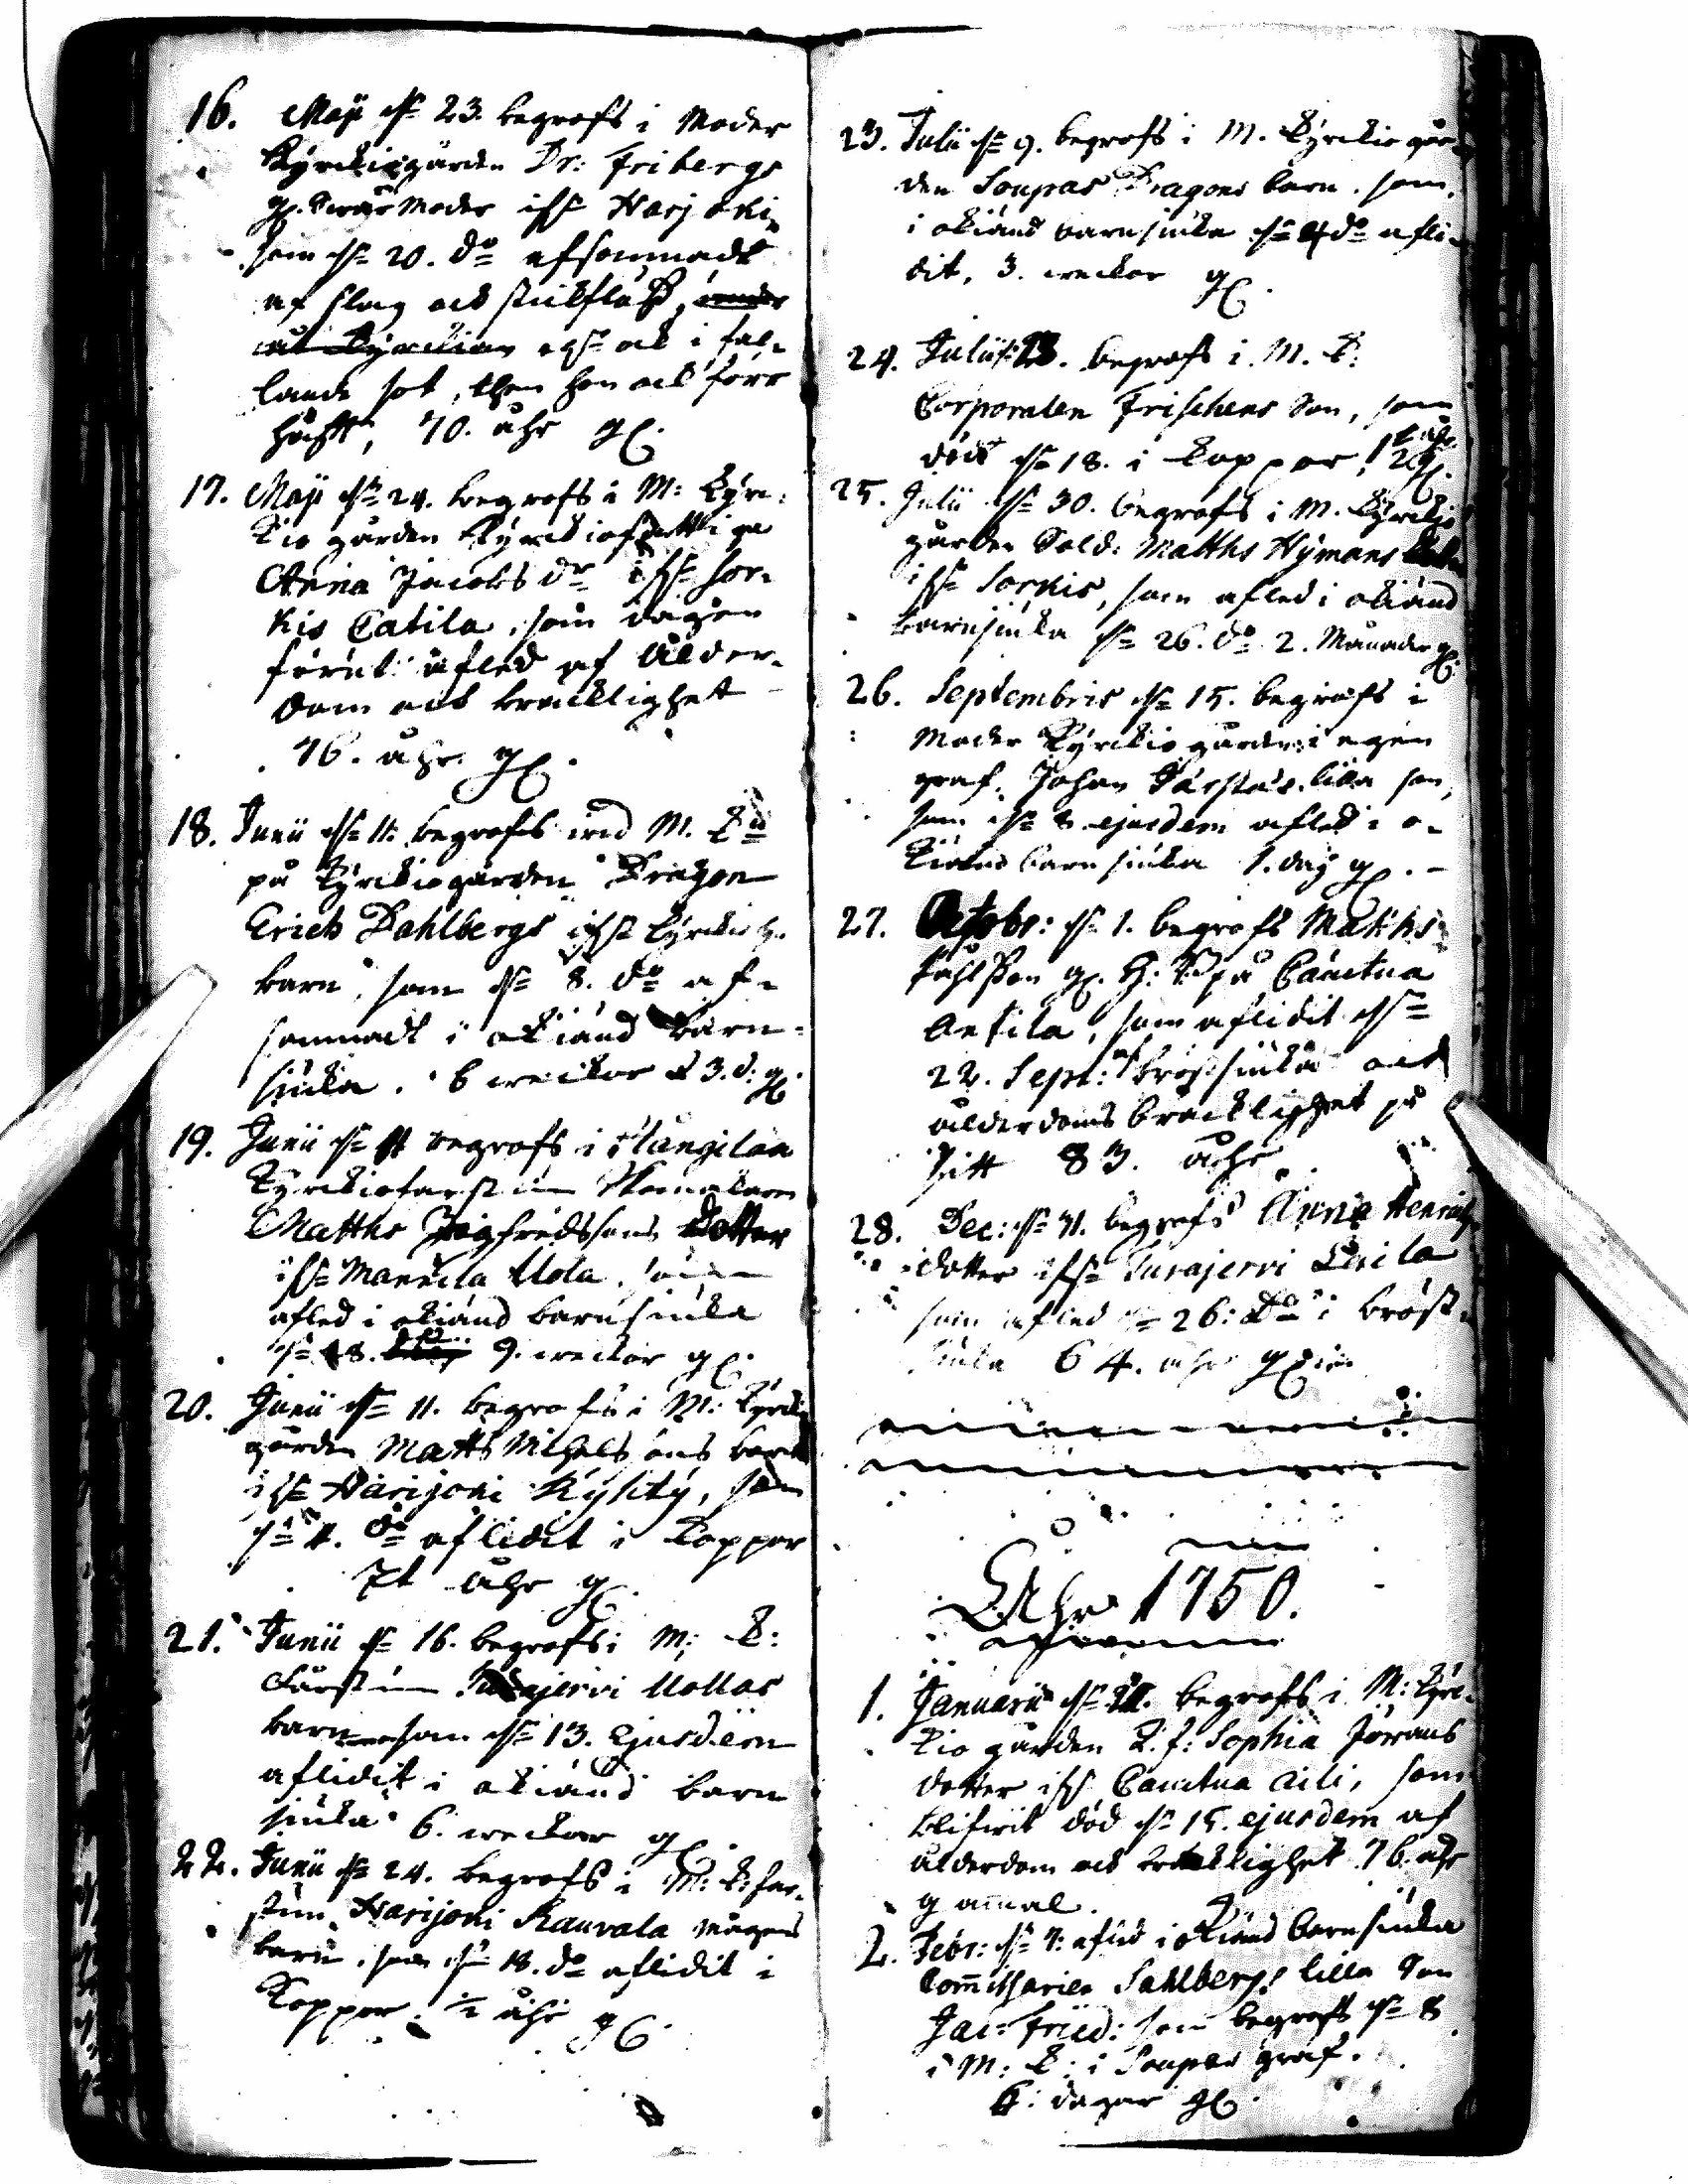 16. Maji d. 23. begrofs i Moder
Kyrckiogården Dr: Fribergs
gl. Swär Moder ifr. Harjoki,
som d. 20. do afsomnade
af slag ock stickfluss,
ock i fal-
lande sot, then hon ock förr
hafft, 70. åhr gl.
17. Maji d. 24. begrofs i M: Kyrc-
kio gården Kyrckiofattiga
Anna Jacobs dr ifr. Sor-
kis Catila, som dagen
förut afled af Ålder-
dom ock bräcklighet
76. åhr gl.
18. Junii d. 11. begrofs wid M. K.
på Kyrckiogården Dragon
Erich Dahlbergs ifr. Kyrckioh.
barn, som d. 8. do af-
somnadt i okiänd barn-
siuka. 6 weckor & 3. d. gl.
19. Junii d. begrofs i
Kyrckiofarstun Skomakaren
Matths Sigfredssons Dotter
ifr. Mannila Uola, som
afled i okiänd barnsiuka
d. 8. 9. weckor gl.
20. Junii d. 11. begrofs i M: Kyrckio
gården Matts Michelssons barn
ifr. Harijoki Kylity, som
d. 4. do aflidit i Koppor
åhr gl.
21. Junii d. 16. begrofs i M: K:
Farstun Turajervi Uollas
barn som d. 13. Ejusdem
aflidit i okiänd barn
siuka 6. weckor gl.
22. Junii d. 24. begrofs i M: K: far-
stun Harijoki Kauvala mågens
barn, som d. 18. do aflidit i
Koppor. 1/2 åhr gl.
23. Julii d. 9. begrofs i M. Kyrckio går-
den Soupas Dragons barn, som
i okiänd barnsiuka d. 4 do afli-
dit, 3. weckor gl.
24. Julii 23. begrofs i M. K:
Corporalen Frischens Son, som
död d. 18. i Koppor,
25. Julii d. 30. begrofs i M. Kyrckio
gården Sold: Matths Hymans
ifr. Sorkis, som afled i okiänd
barnsiuka d. 26. do 2. Månader gl.
26. Septembris d. 15. begrofs i
Moder Kyrckio gården i egen
graf, Johan lilla son,
som d. 8. ejusdem afled i o-
kiänd barn siuka 1. dag gl.
27. Octobr: d. 1. begrofs Matths
gl. på Cauttua
Antila, som aflidit d.
22. Sept: af bröstsiuka ock
ålderdoms bräcklighet på
sitt 83. åhr.
28. Dec: d. 31. begrofs Anna Henrichs
dotter ifr. Turajervi
som afled d. 26: do i bröst-
siuka 64. åhr gl.
Åhr 1750.
1. Januarii d. begrofs i M: Kyrc-
kio gården K. f: Sophia Jörans
dotter ifr. Cauttua Aili, som
blifwit död d. 15. ejusdem af
ålderdom ock bräcklighet 76. åhr
gammal.
2. Febr: d. 7. afled i okiänd barnsiuka
Commissarien Sahlbergs lilla Son
Jac: Fried: som begrofs d. 8
i M: K: i Soupas graf.
6: dagar gl.